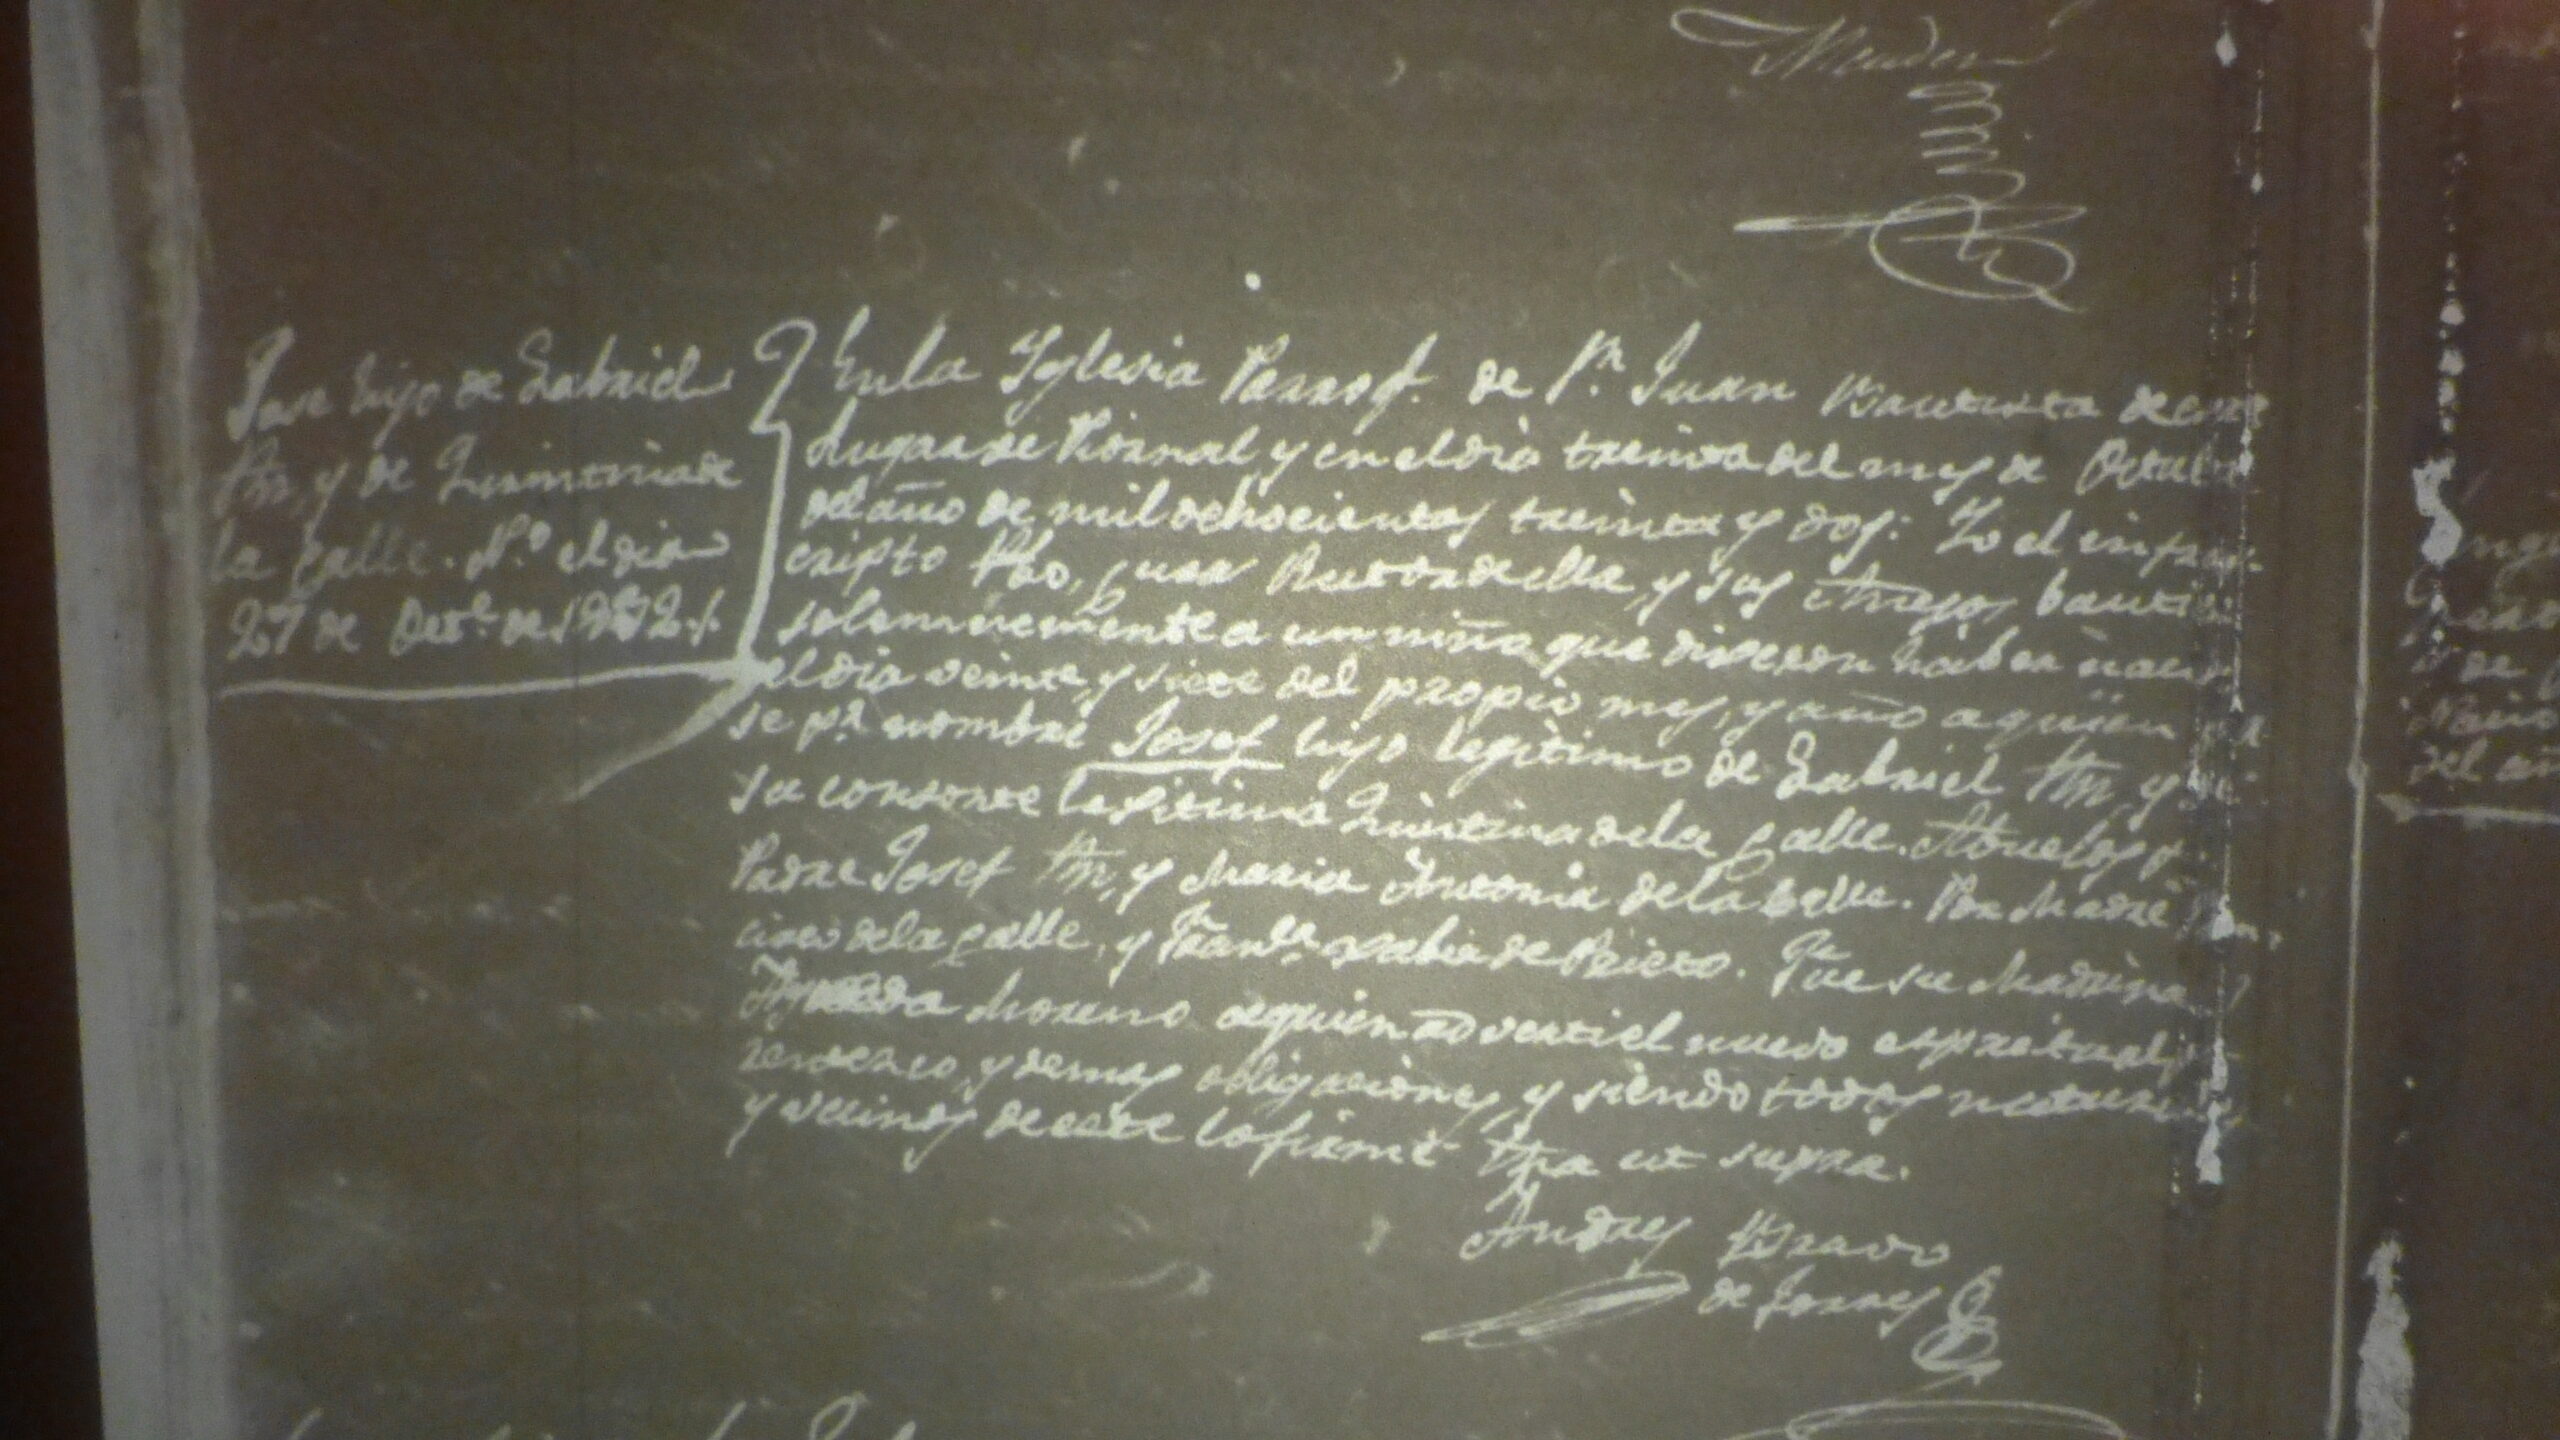 Mendez
Jose hijo de Gabriel
Mrn, y de Quintina de
la Calle. N.º el dia
27 de Oct.e de 1832.
En la Yglesia Parroq. de Sn. Juan Bautista de este
Lugar de Piornal, y en el dia treinta del mes de Octubre
del año de mil ochocientos treinta y dos: Yo el infras-
cripto Pbo, Cura Rector de ella, y sus Anejos bautice
solemnemente a un niño que dixeron haber nacido
el dia veinte, y siete del propio mes, y año a quien
se pr. nombre Josef hijo legitimo de Gabriel Mrn, y de
su consorte legitima Quintina de la Calle. Abuelos p.
Padre Josef Mrn, y Maria Antonia de la Calle. Por Madre
cisco de la Calle, y Fran.ca Prieto. Fue su Madrina
Agueda Moreno a quien adverti el nuevo espiritual
rentesco, y demas obligaciones, y siendo todos naturales
y vecinos de este lo firmé fha ut supra.
Andres Bravo
de Torres